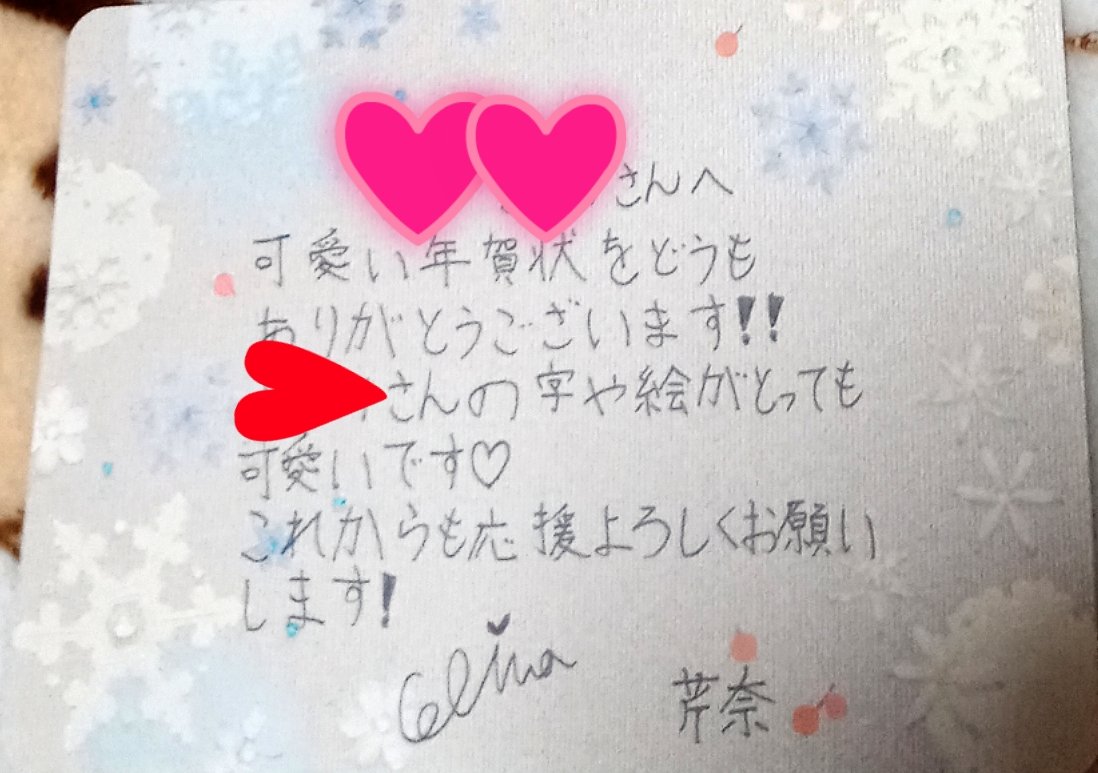 さんへ
可愛い年賀状をどうも
ありがとうございます!!
さんの字や絵がとっても
可愛いです♡
これからも応援よろしくお願い
します!
芹奈